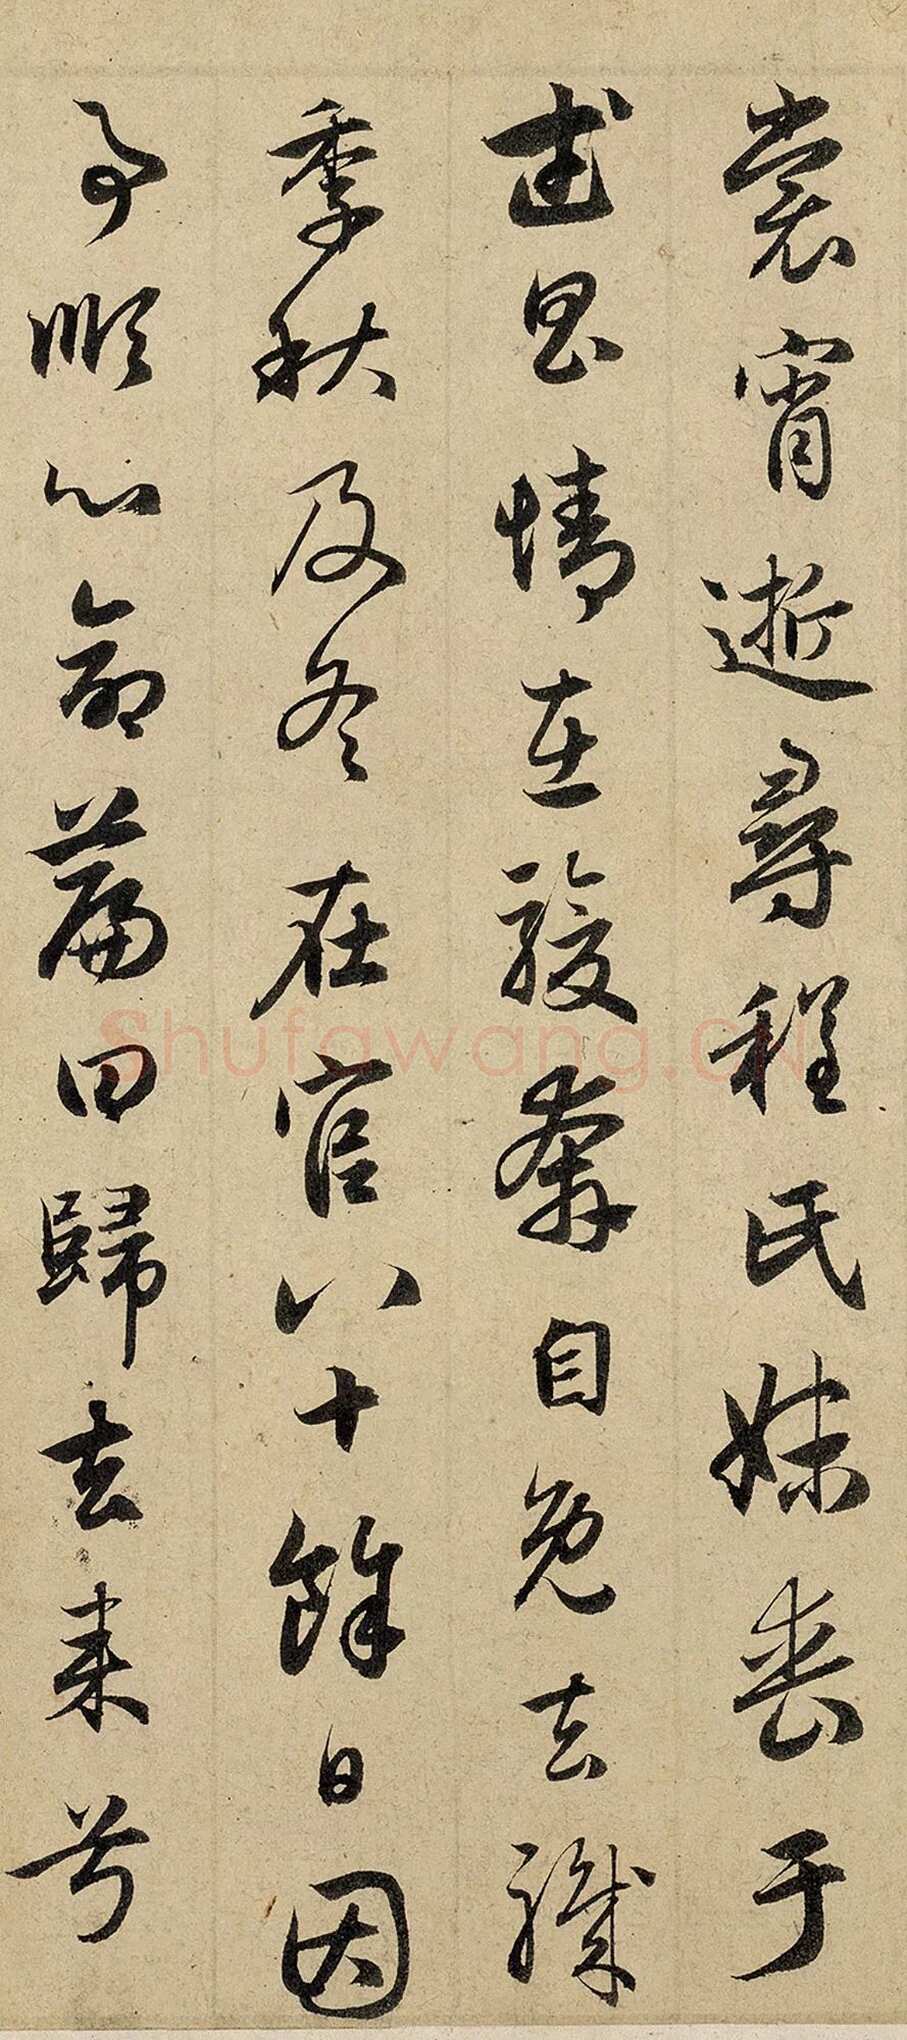 裳宵逝尋程氏妹喪于
武昌情在駿奔自免去職
季秋及冬在官八十餘日因
事順心命篇曰歸去来兮
Shufawang.CN